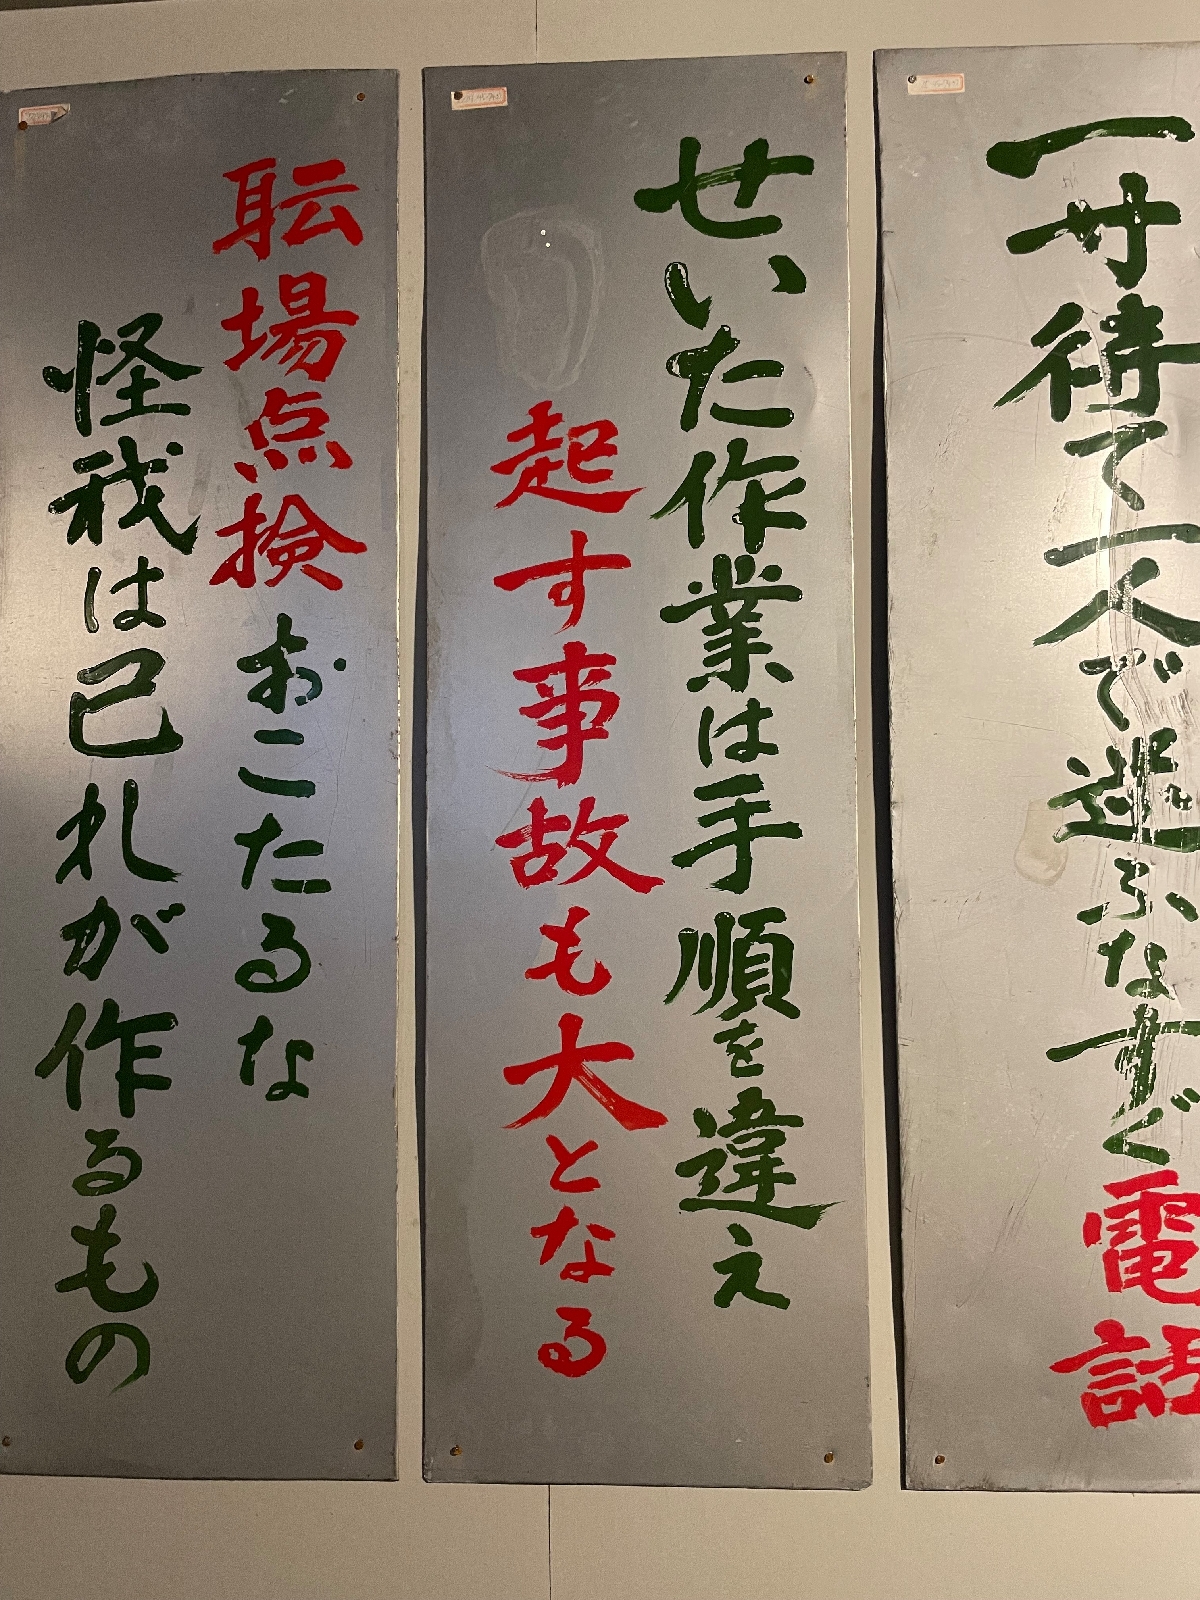 一寸待て一人で ふなすぐ電話
せいた作業は手順を違え
起す事故も大となる
耺場点検おこたるな
怪我は己れが作るもの